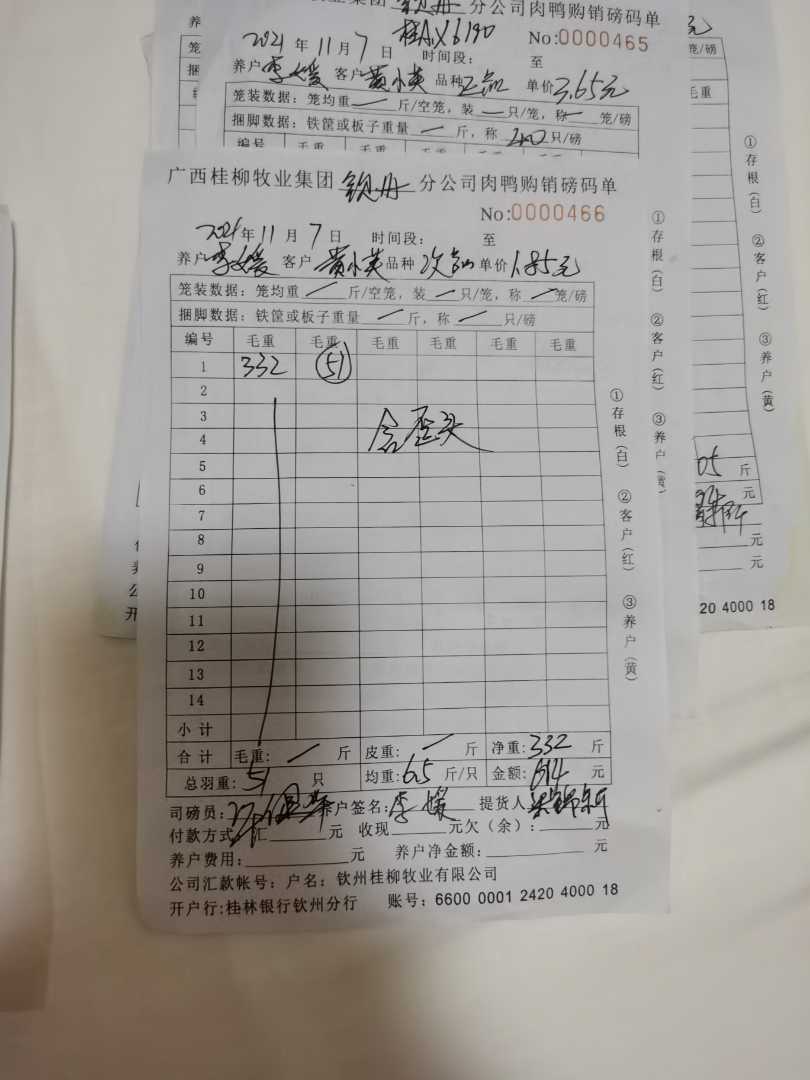 分公司肉鸭购销磅码单
No:0000465
2021年11月7日 时间段: 至
养户 客户 黄小英 品种 正品 单价3.65元
笼装数据: 笼均重一斤/空笼, 装一只/笼, 称一笼/磅
捆脚数据: 铁筐或板子重量一斤, 称200只/磅
编号 毛重 毛重
广西桂柳牧业集团 钦丹 分公司肉鸭购销磅码单
No:0000466
2021年11月7日 时间段: 至
养户 客户 黄小英 品种 次品 单价1.85元
笼装数据: 笼均重一斤/空笼, 装一只/笼, 称一笼/磅
捆脚数据: 铁筐或板子重量一斤, 称一只/磅
编号 毛重 毛重 毛重 毛重 毛重 毛重
1 332 51
2
3 含歪头
4
5
6
7
8
9
10
11
12
13
14
小计
合计 毛重: 一斤 皮重: 一斤 净重: 332斤
总羽重: 51只 均重: 6.5斤/只 金额: 614元
司磅员: 养户签名: 提货人
付款方式 汇 元 收现 元欠(余): 元
养户费用: 元 养户净金额: 元
公司汇款帐号: 户名: 钦州桂柳牧业有限公司
开户行:桂林银行钦州分行 账号: 6600 0001 2420 4000 18
①存根(白) ②客户(红) ③养户(黄)
①存根(白) ②客户(红) ③养户
①存根(白) ②客户(红) ③养户(黄)
笼/磅
毛重
05 斤
元
元
元
20 4000 18